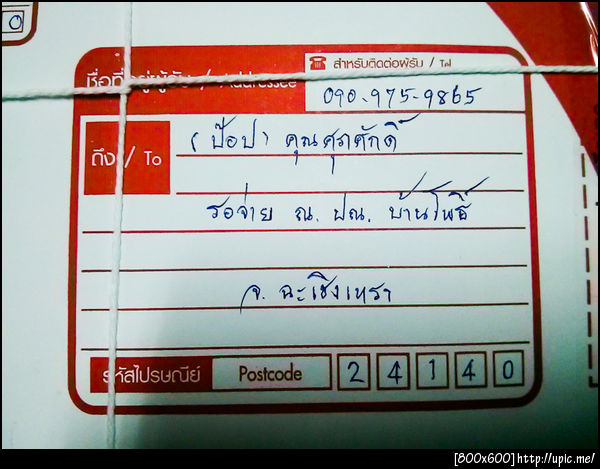 0
สำหรับติดต่อผู้รับ / Tel
ชื่อที่อยู่ผู้รับ / Addressee
090-975-9865
ถึง / To
(ป๊อป) คุณศุภศักดิ์
รอจ่าย ณ. ปณ. บ้านโพธิ์
จ. ฉะเชิงเทรา
รหัสไปรษณีย์ Postcode 24140
[800x600]http://upic.me/